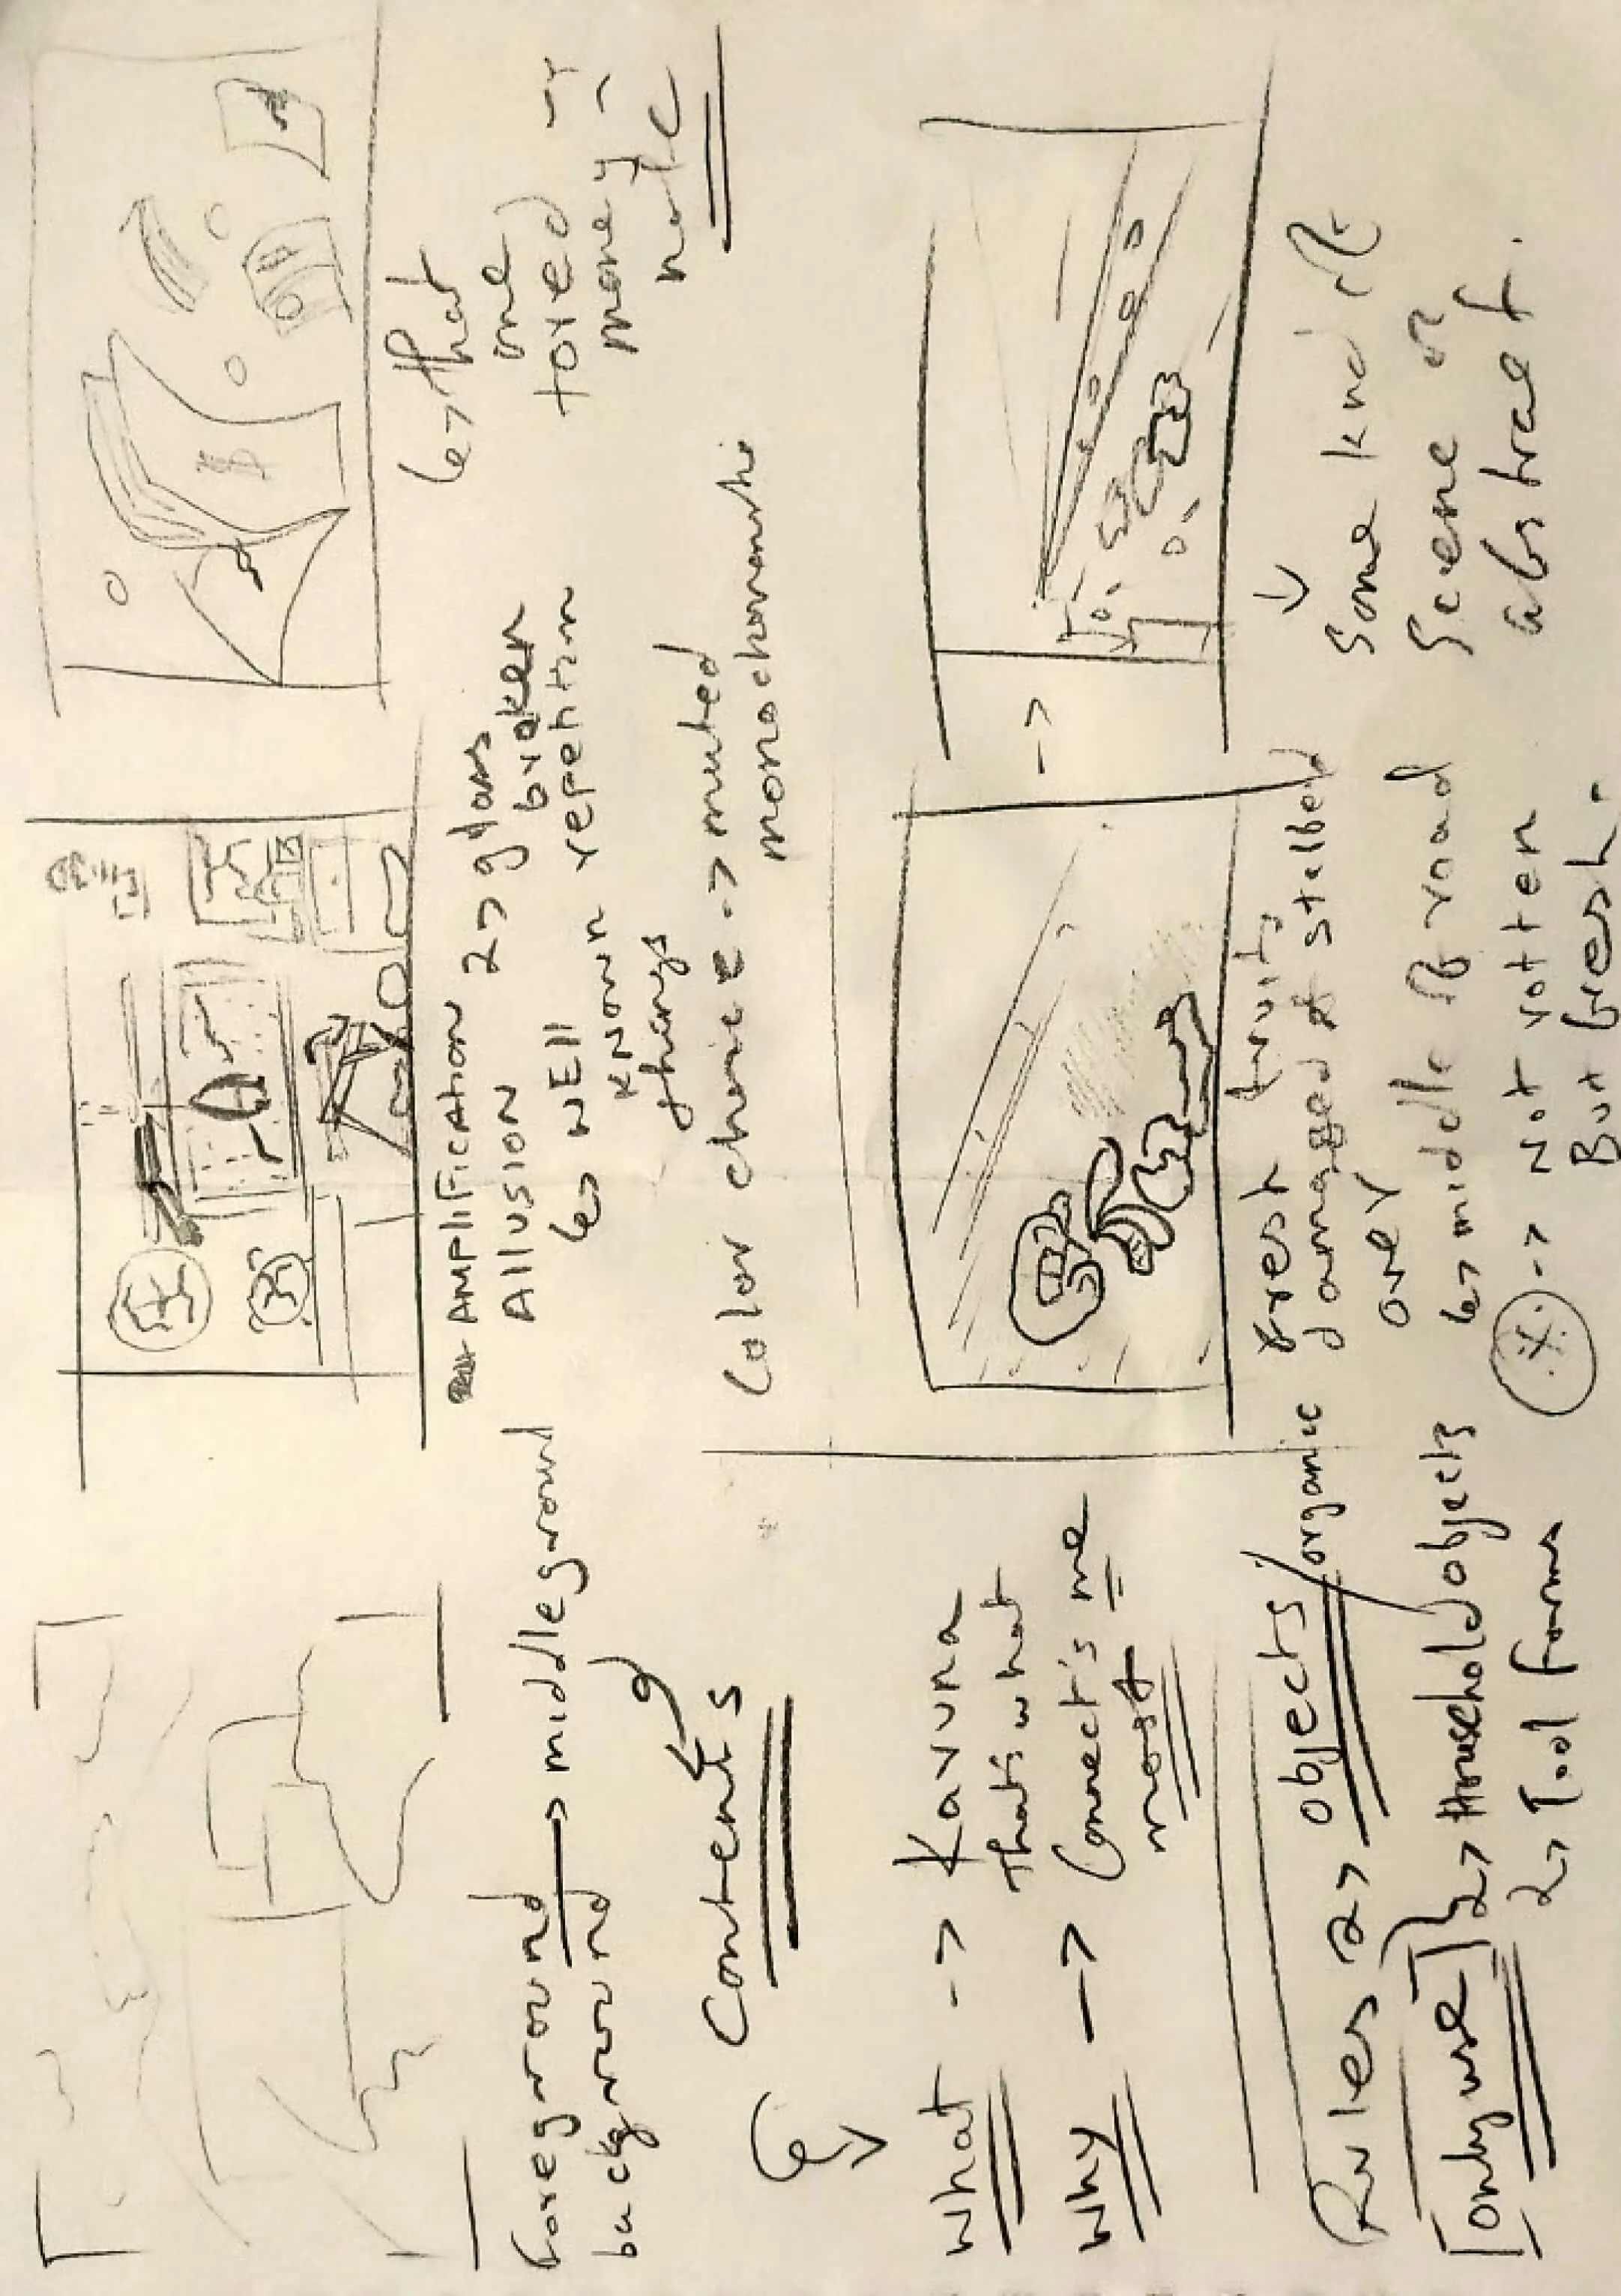 foreground → middleground
background
Contents
what --> Kavuna
that's what
why --> Connect's me
most
Rules 2> objects/organic
[only use] 2> Household objects
2> Tool forms
AMPLIFICATION 2> glass
Allusion broken
↳ WEll repetition
known
things
Color choice --> muted
monochromatic
↳ that
one
toxed
money
note
fresh fruits
damaged &
one
↳ middle of road
--> Not rotten
But fresh.
-->
Some kind of
Scene or
abstract.